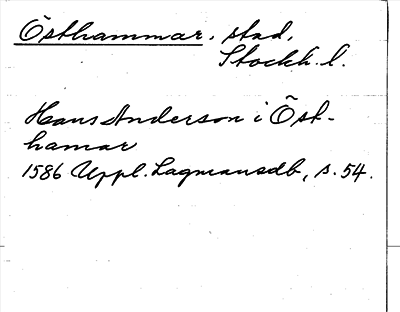 Östhammar. stad.
Stockh. l.
Hans Anderson i Öst-
hamar
1586 Uppl. Lagmansdb, s. 54.